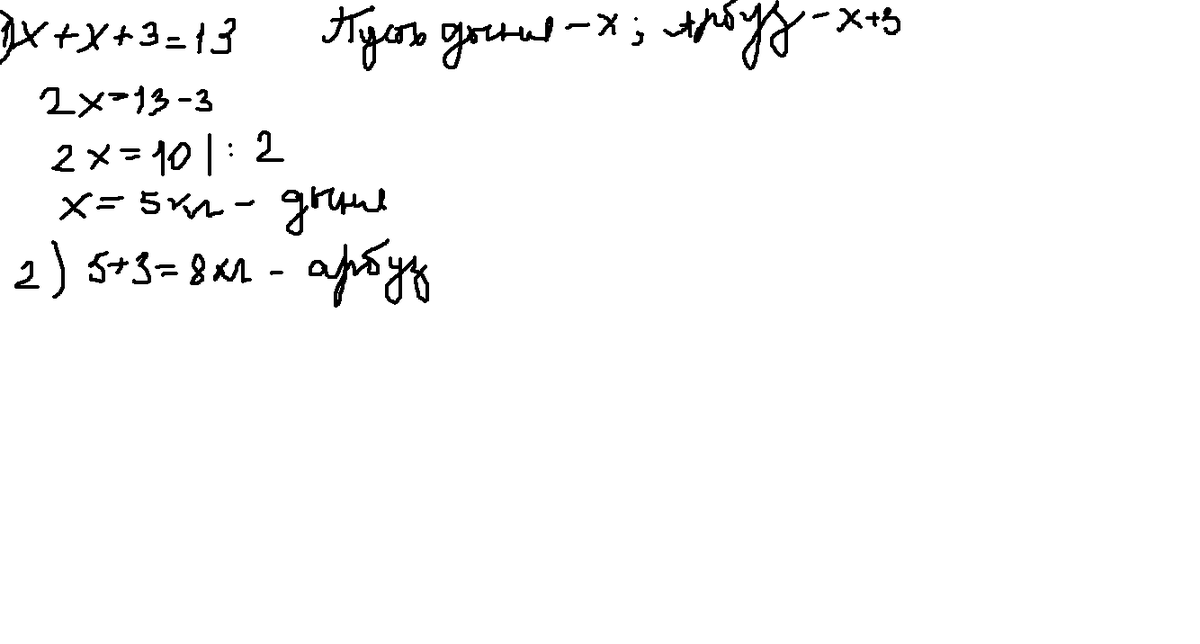 1) x + x + 3 = 13 Пусть дыня - x; арбуз - x+3
2x = 13 - 3
2x = 10 | : 2
x = 5кг - дыня
2) 5+3 = 8кг - арбуз